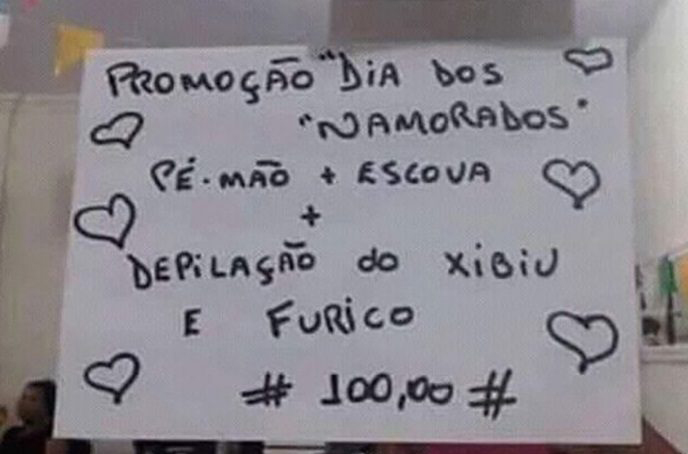 PROMOÇÃO "DIA DOS
"NAMORADOS"
PÉ-MÃO + ESCOVA
+
DEPILAÇÃO do XIBIU
E FURICO
# 100,00 #